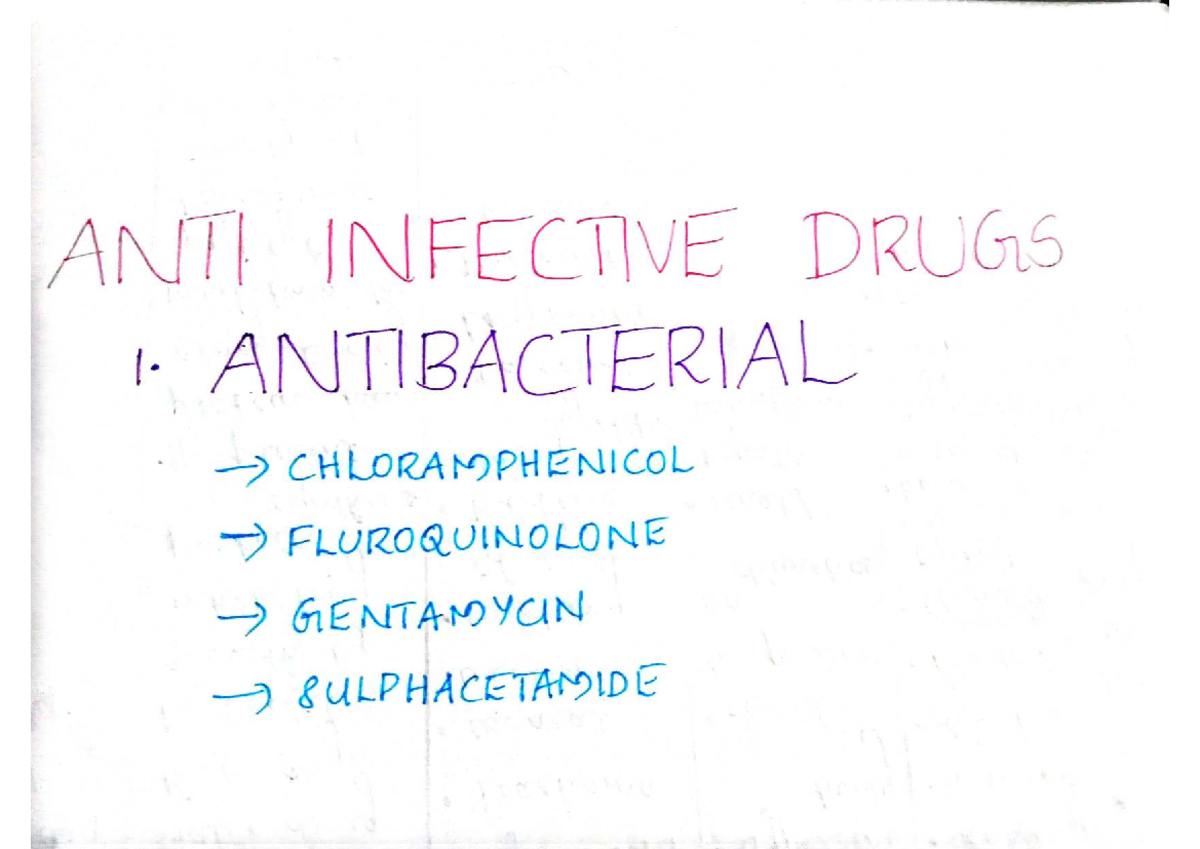 ANTI INFECTIVE DRUGS
1. ANTIBACTERIAL
→ CHLORAMPHENICOL
→ FLUROQUINOLONE
→ GENTAMYCIN
→ SULPHACETAMIDE